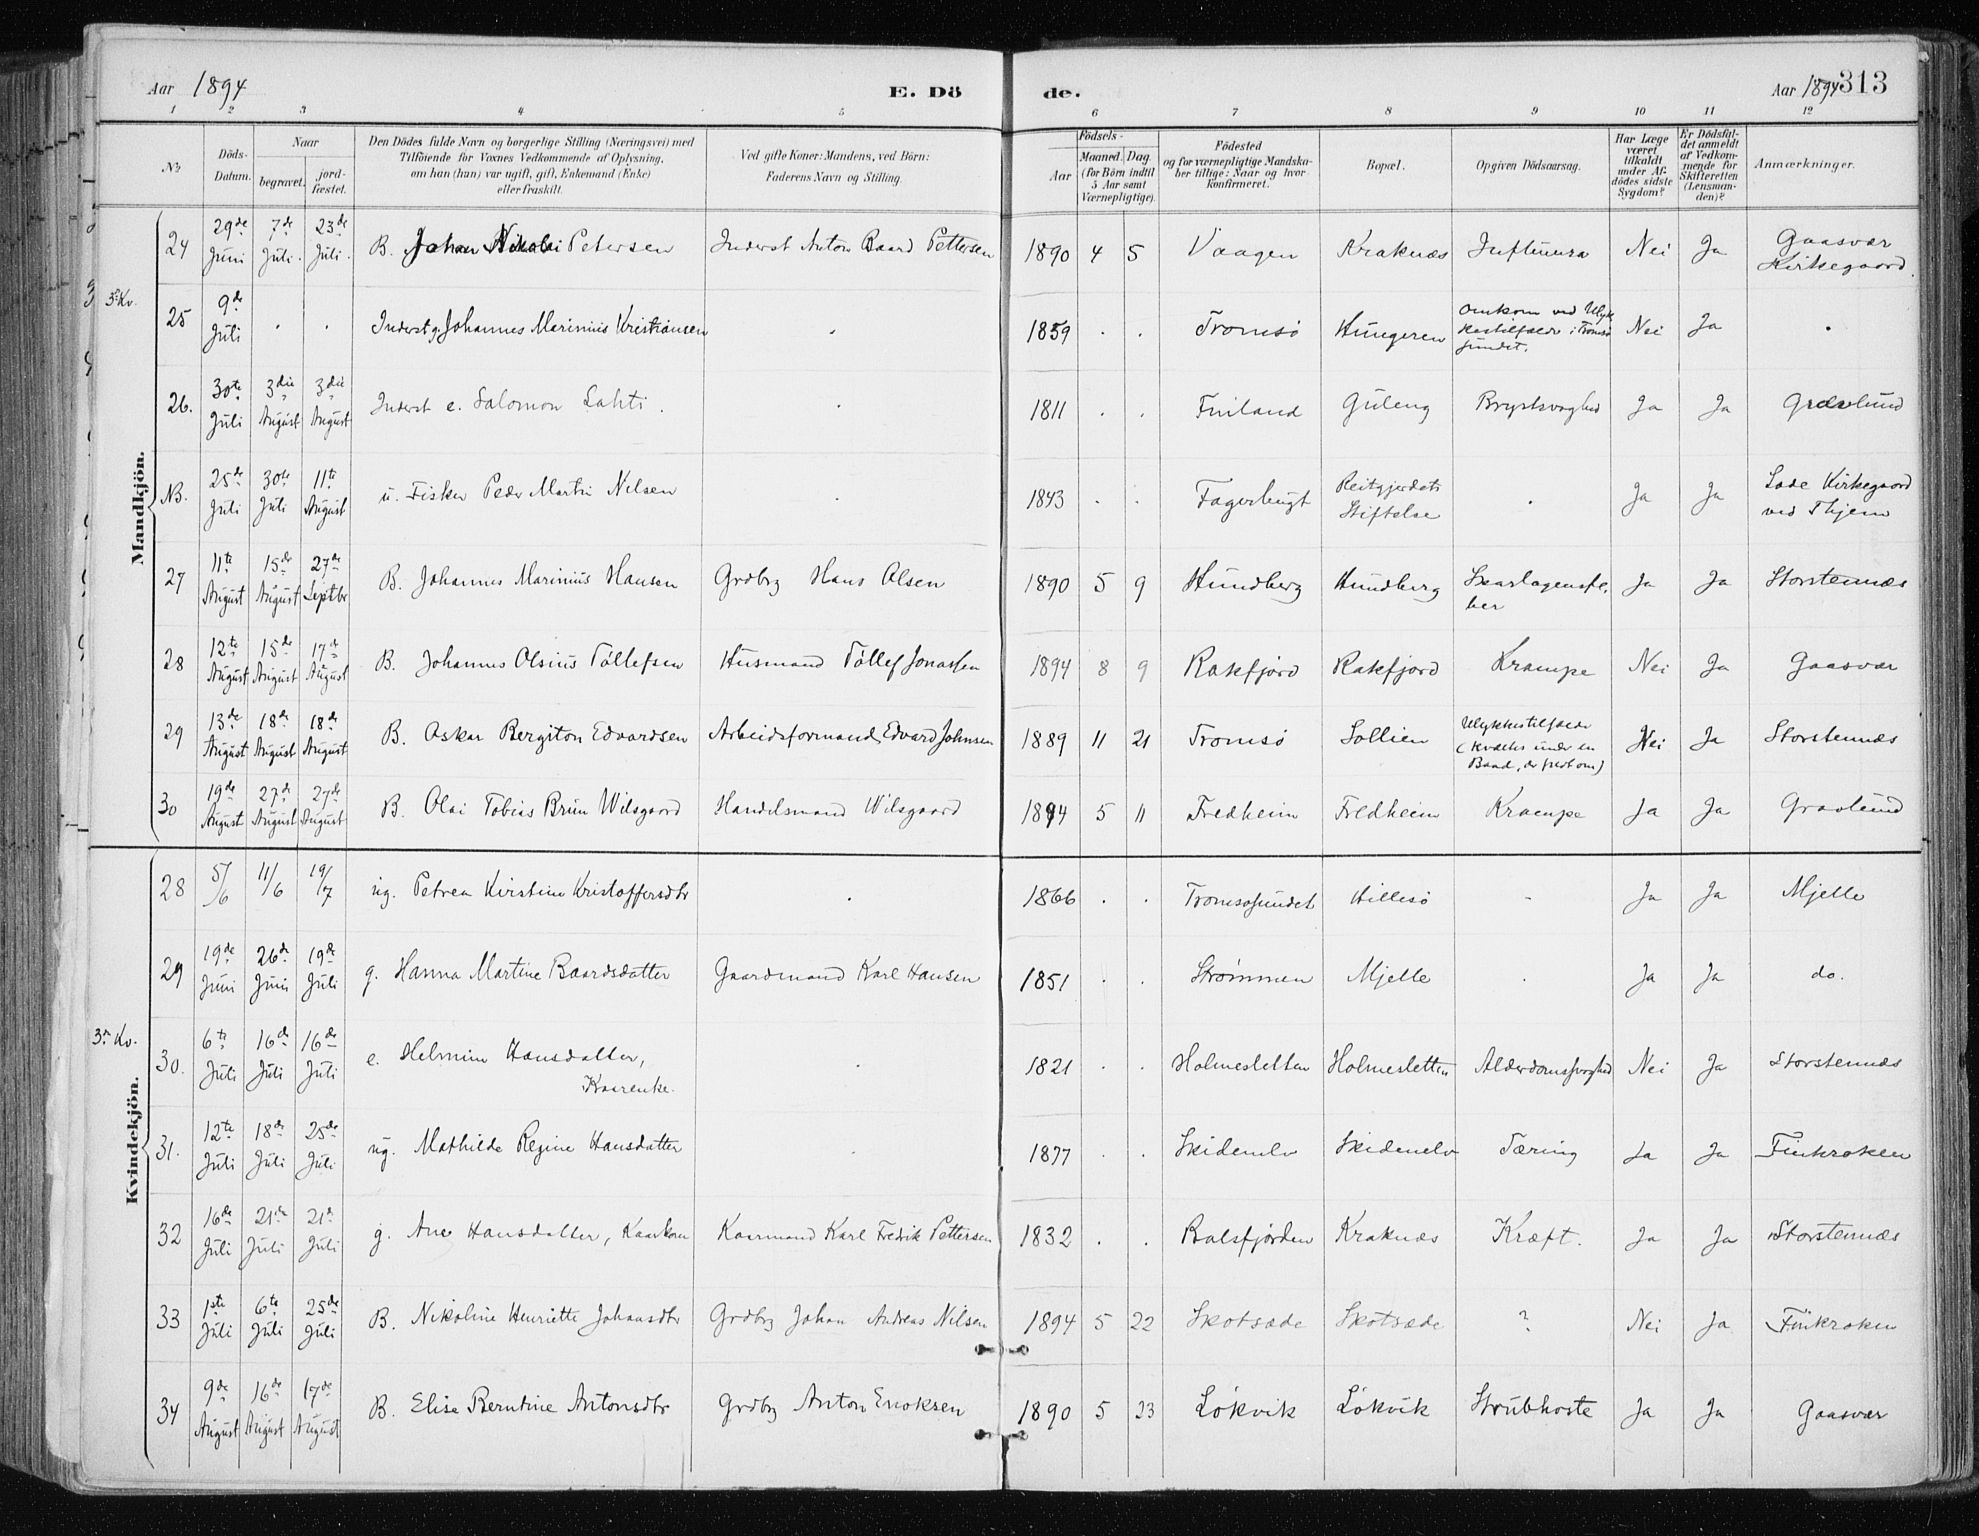 Aar 1894 E. Dö de. Aar 1894 313
1 2 3 4 5 6 7 8 9 10 11 12
No.
Döds-
Datum.
Naar
begravet.
jord-
fæstet.
Den Dödes fulde Navn og borgerlige Stilling (Næringsvei) med
Tilföiende for Voxnes Vedkommende af Oplysning,
om han (hun) var ugift, gift, Enkemand (Enke)
eller fraskilt.
Ved gifte Koner: Mandens, ved Börn:
Faderens Navn og Stilling.
Födsels-
Aar
Maaned. Dag.
(for Börn indtil
5 Aar samt
Værnepligtige).
Födested
og for værnepligtige Mandska-
ber tillige: Naar og hvor
konfirmeret.
Bopæl.
Opgiven Dödsaarsag.
Har Læge
været
tilkaldt
under Af-
dödes sidste
Sygdom?
Er Dödsfal-
det anmeldt
af Vedkom-
mende for
Skifteretten
(Lensman-
den)?
Anmærkninger.
Mandkjön.
24 29de Juni 7de Juli. 23de Juli. B. Johan Nikolai Petersen Inderst Anton Baard Pettersen 1890 4 5 Vaagen Kraknæs Influenza Nei Ja Gaasvær Kirkegaard.
3die Kv.
25 9de Juli . . Inderst g. Johannes Marinius Kristiansen . 1859 . . Tromsö Hungeren Omkom ved Ulyk kestilfælde i Tromsö sundet. Nei Ja .
26. 30te Juli 3die August 3die August Inderst e. Salomon Lahti. . 1811 . . Finland Guleng Brystsvaghed Ja Ja Gravlund
NB. 25de Juli 30te Juli 11te August u. Fisker Peder Martin Nilsen . 1843 . . Fagerbugt Reitgjerdets Stiftelse . Ja Ja Lade Kirkegaard ved Thjem
27 11te August 15de August 27de Septbr B. Johannes Marinius Hansen Grdbrg Hans Olsen 1890 5 9 Hundberg Hundberg Skarlagensfe, ber Ja Ja Storstennæs
28 12te August 15de August 17de August B. Johannes Olsius Töllefsen Husmand Töllef Jonassen 1894 8 9 Rakfjord Rakfjord Krampe Nei Ja Gaasvær
29 13de August 18de August 18de August B. Oskar Bergiton Edvardsen Arbeidsformand Edvard Johnsen 1889 11 21 Tromsö Sollien Ulykkestilfælde (kvæltes under en Baad, der faldt om) Nei Ja Storstennæs
30 19de August 27de August 27de August B. Olai Tobias Brun Wilsgaard Handelsmand Wilsgaard 1894 5 11 Fredheim Fredheim Krampe Ja Ja Gravlund
Kvindekjön.
28 5/6 11/6 19/7 ug. Petrea Kirstine Kristoffersdtr . 1866 . . Tromsösundet Hillesö - Ja Ja Mjelle
29 19de Juni 26de Juni 19de Juli g. Hanna Martine Baardsdatter Gaardmand Karl Hansen 1851 . . Strømmen Mjelle . Ja Ja do.
3die Kv.
30. 6te Juli 16de Juli 16de Juli e. Helmine Hansdatter, Kaarenke. . 1821 . . Holmesletten Holmesletten Alderdomssvaghed Nei Ja Storstennæs
31. 12te Juli 18de Juli 25de Juli ug. Mathilde Regine Hansdatter . 1877 . . Skidenelv Skidenelv Tæring Ja Ja Finkroken
32 16de Juli 21de Juli 21de Juli g. Ane Hansdatter, Kaarkone Kaarmand Karl Fredrik Pettersen 1832 . . Balsfjorden Kraknæs Kræft. Ja Ja Storstennæs
33 1ste Juli 6te Juli 25de Juli B. Nikoline Henriette Johansdtr Grdbrg Johan Andreas Nilsen 1894 5 22 Skotsæde Skotsæde ? Nei Ja Finkroken
34 9de August 16de August 17de August B. Elise Berntine Antonsdtr Grdbrg Anton Enoksen 1890 5 23 Løkvik Løkvik Strubhoste Ja Ja Gaasvær